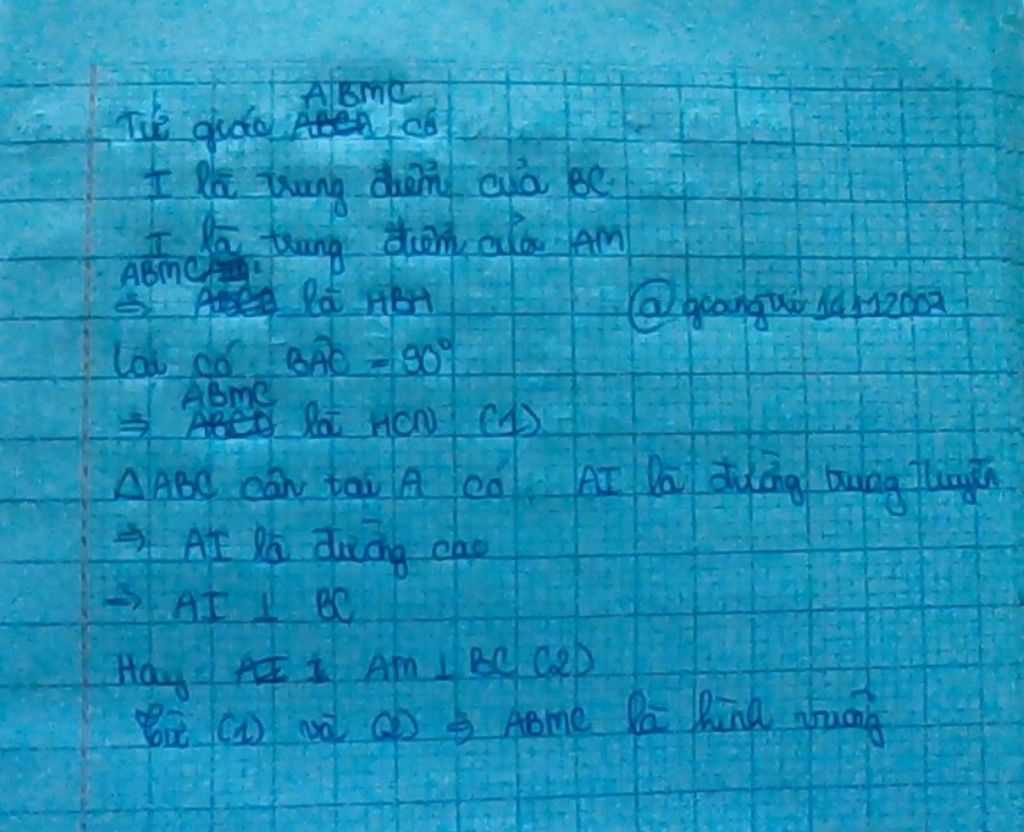 ABMC
Tứ giác ABCA có
I là trung điểm của BC
I là trung điểm của AM
ABMC
⇒ ABCD là HBH
@quangtri14112007
Lại có BAC = 90°
ABMC
⇒ ABCD là HCN (1)
△ABC cân tại A có AI là đường trung tuyến
⇒ AI là đường cao
⇒ AI ⊥ BC
Hay AI ⊥ AM ⊥ BC (2)
Từ (1) và (2) ⇒ ABMC là hình vuông